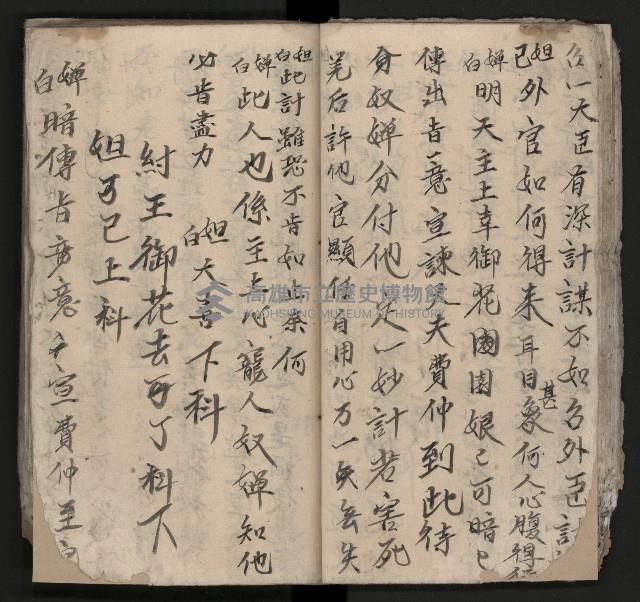 召一大臣有深計謀不如召外臣計
妲己外官如何得来耳目甚象何人心腹得
嬋白明天主上幸御花國園娘〻可暗〻
傳出旨意宣諫大夫費仲到此待
奴嬋分付他定一妙計若害死
羌后許他官顯任自用心万一無失
妲白此計雖恐不肯如此奈何
嬋白此人也係主上心寵人奴嬋知他
必肯盡力 妲白大喜下科
紂王御花去可了科下
妲可己上科
嬋白暗傳旨意去宣費仲至
高雄市立歷史博物館
KAOHSIUNG MUSEUM OF HISTORY